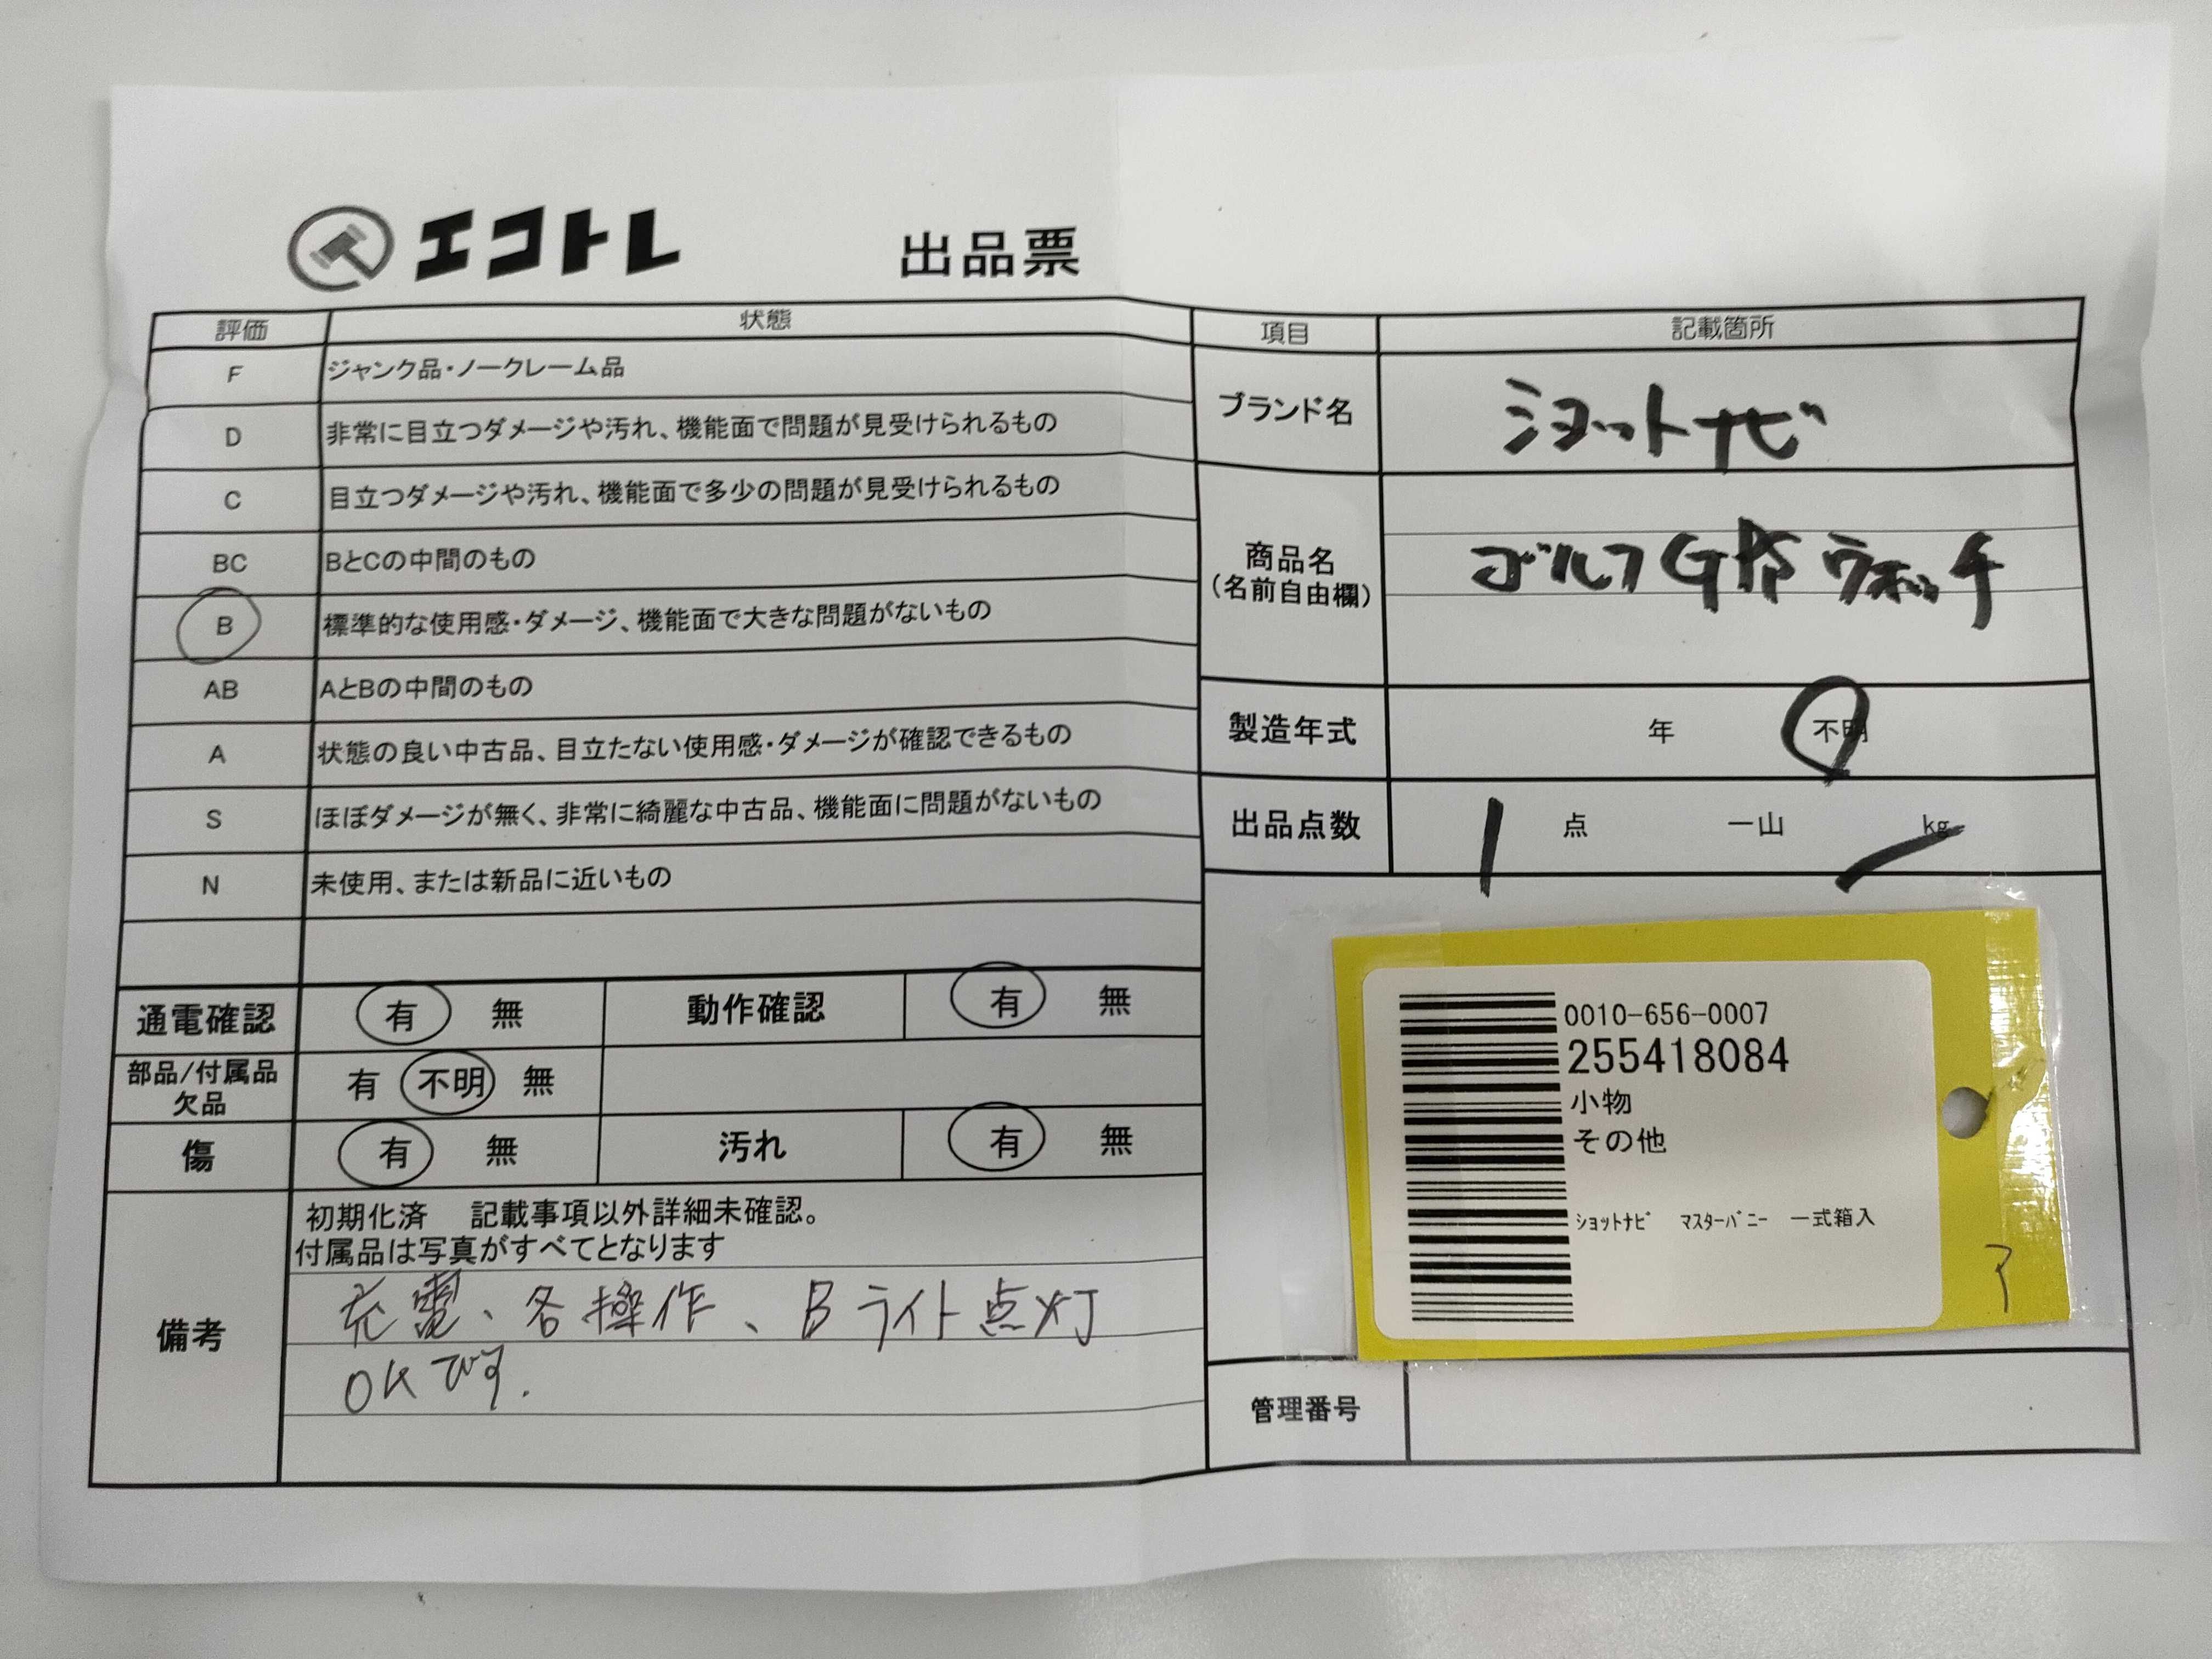 エコトレ 出品票
評価 状態
F ジャンク品・ノークレーム品
D 非常に目立つダメージや汚れ、機能面で問題が見受けられるもの
C 目立つダメージや汚れ、機能面で多少の問題が見受けられるもの
BC BとCの中間のもの
B 標準的な使用感・ダメージ、機能面で大きな問題がないもの
AB AとBの中間のもの
A 状態の良い中古品、目立たない使用感・ダメージが確認できるもの
S ほぼダメージが無く、非常に綺麗な中古品、機能面に問題がないもの
N 未使用、または新品に近いもの
通電確認 有 無 動作確認 有 無
部品/付属品 有 不明 無
欠品
傷 有 無 汚れ 有 無
備考
初期化済 記載事項以外詳細未確認。
付属品は写真がすべてとなります
充電、各操作、Bライト点灯
OKです.
項目 記載箇所
ブランド名 ショットナビ
商品名
(名前自由欄)
ゴルフGPSウォッチ
製造年式 年 不明
出品点数 1 点 一山 kg
0010-656-0007
255418084
小物
その他
ｼｮｯﾄﾅﾋﾞ ﾏｽﾀｰﾊﾞﾆｰ 一式箱入
管理番号